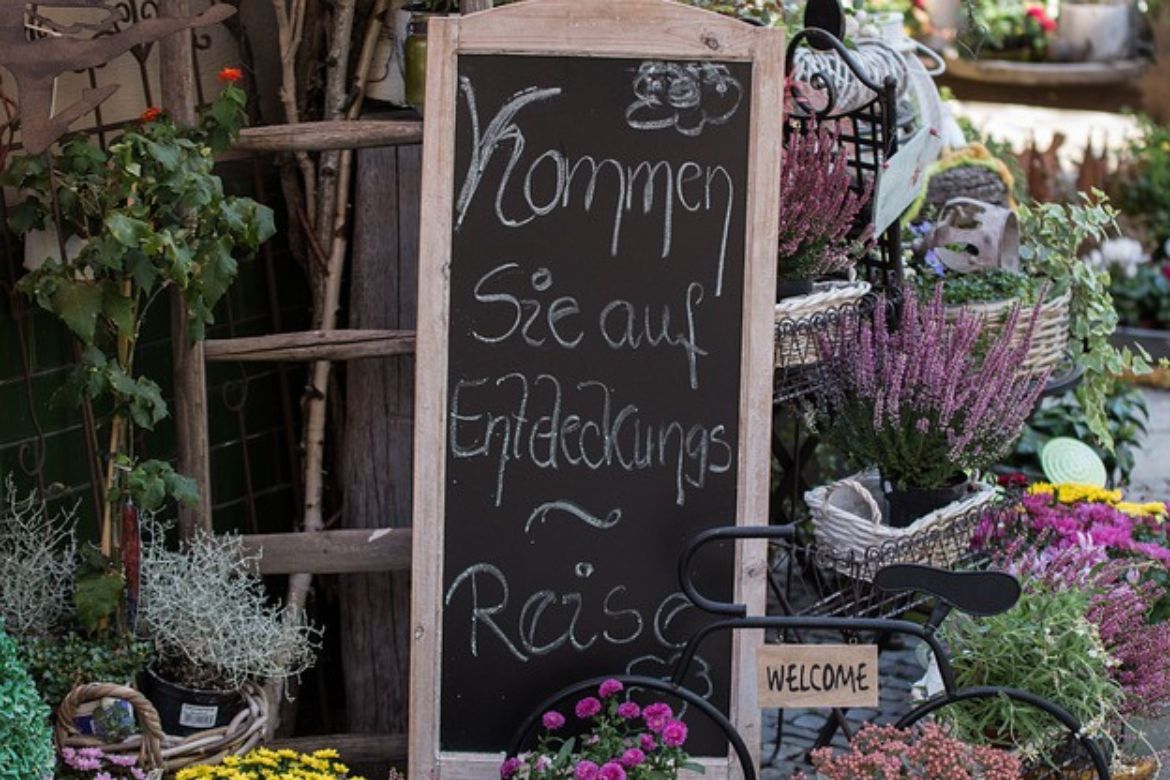 Kommen
Sie auf
Entdeckungs
~
Reise
WELCOME